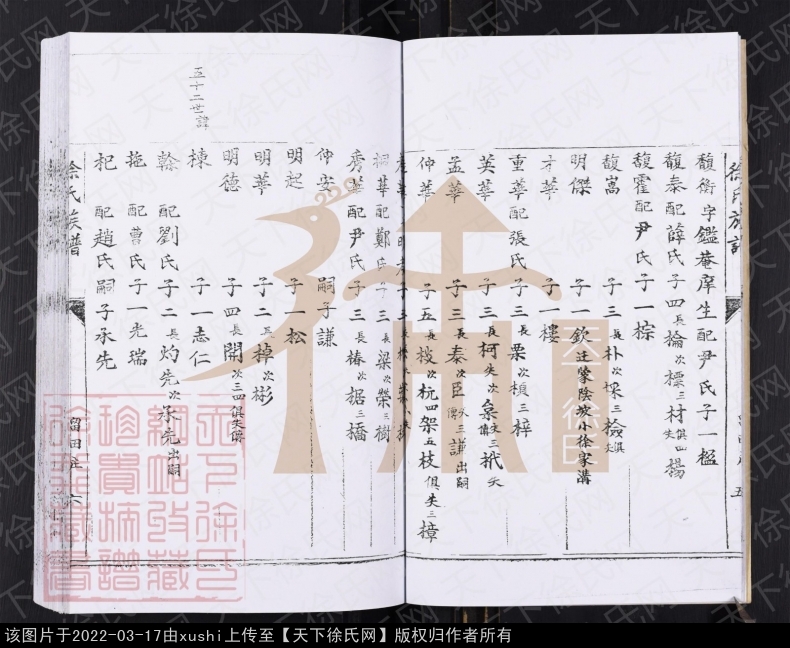 徐氏族譜
馥衡字鑑菴庠生配尹氏子一楹
馥泰配薛氏子四長棆次標三材俱失四楊
馥霍配尹氏子一棕
馥嵩 子三長朴次琛三檢俱失
明傑 子一欽迁蒙陰坡小徐家溝
才華 子一樓
重華配張氏子三長栗次楨三梓
英華 子三長柯失次
孟華 子三長泰次臣失傳三謙出嗣
仲華 子五長枝次杬四架五枝俱失三樟
楊華配鄭氏子三長梁次榮三樹
秀華配尹氏子三長椿次椐三橋
仲安 嗣子謙
明起 子一松
明華 子二長棹次彬
明德 子四長開次三四俱失傳
棟 子一志仁
五十二世諱
榦配劉氏子二長灼先次承先出嗣
拖配曹氏子一光瑞
杞配趙氏嗣子承先
徐氏族譜
留田庄 六
徐
天下徐氏
天下徐氏網站收藏珍貴孤譜徐氏藏書
天下徐氏网
该图片于2022-03-17由xushi上传至【天下徐氏网】版权归作者所有